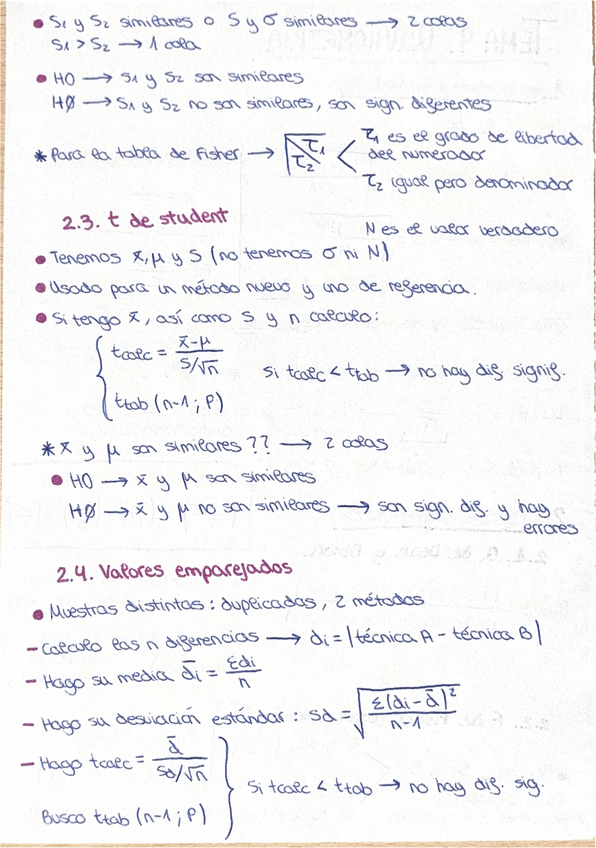 • S₁ y S₂ similares o S y σ similares → 2 colas
S₁ > S₂ → 1 cola
• H0 → S₁ y S₂ son similares
HØ → S₁ y S₂ no son similares, son sign. diferentes
* Para la tabla de Fisher → τ₁ τ₂ < τ₁ es el grado de libertad
del numerador
τ₂ igual pero denominador
2.3. t de student
N es el valor verdadero
• Tenemos x̄, μ y S (no tenemos σ ni N)
• Usado para un método nuevo y uno de referencia.
• Si tengo x̄, así como S y n calculo:
{ tcalc = (x̄-μ)/(S/√n)
Si tcalc < ttab → no hay dif. signif.
ttab (n-1; P)
* x̄ y μ son similares ?? → 2 colas
• H0 → x̄ y μ son similares
HØ → x̄ y μ no son similares → son sign. dif. y hay
errores
2.4. Valores emparejados
• Muestras distintas: duplicadas, 2 métodos
- Calculo las n diferencias → di = |técnica A - técnica B|
- Hago su media d̄i = Σdi/n
- Hago su desviación estándar: sd = √(Σ(di - d̄)²/(n-1))
- Hago tcalc = d̄/(sd/√n)
} Si tcalc < ttab → no hay dif. sig.
Busco ttab (n-1; P)